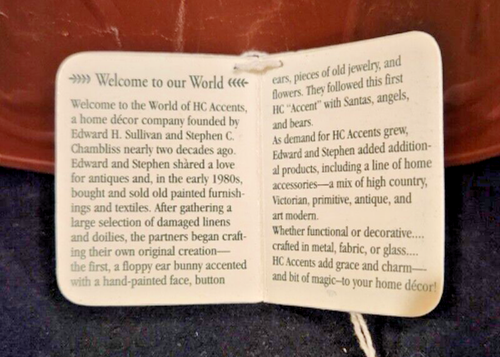 Welcome to our World
Welcome to the World of HC Accents,
a home décor company founded by
Edward H. Sullivan and Stephen C.
Chambliss nearly two decades ago.
Edward and Stephen shared a love
for antiques and, in the early 1980s,
bought and sold old painted furnish-
ings and textiles. After gathering a
large selection of damaged linens
and doilies, the partners began craft-
ing their own original creation—
the first, a floppy ear bunny accented
with a hand-painted face, button
ears, pieces of old jewelry, and
flowers. They followed this first
HC "Accent" with Santas, angels,
and bears.
As demand for HC Accents grew,
Edward and Stephen added addition-
al products, including a line of home
accessories—a mix of high country,
Victorian, primitive, antique, and
art modern.
Whether functional or decorative....
crafted in metal, fabric, or glass....
HC Accents add grace and charm—
and bit of magic–to your home décor!